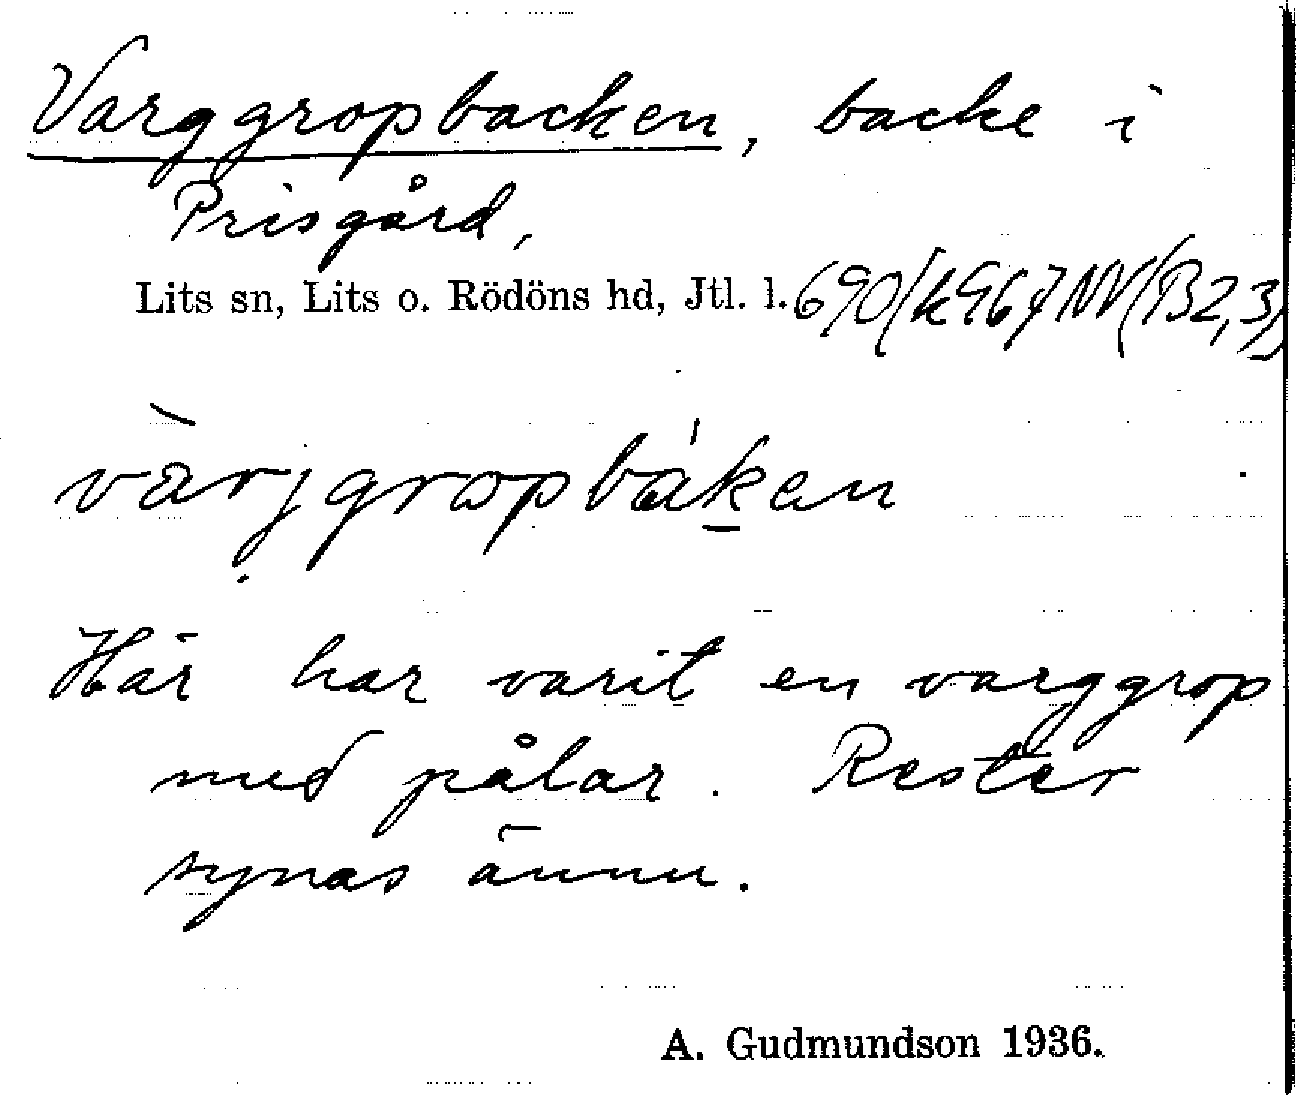 Varggropbacken, backe i
Prisgård,
Lits sn, Lits o. Rödöns hd, Jtl. l. 690/k967NV(B2,3)
vàrjgropbákan
Här har varit en varggrop
med pålar. Rester
synas ännu.
A. Gudmundson 1936.